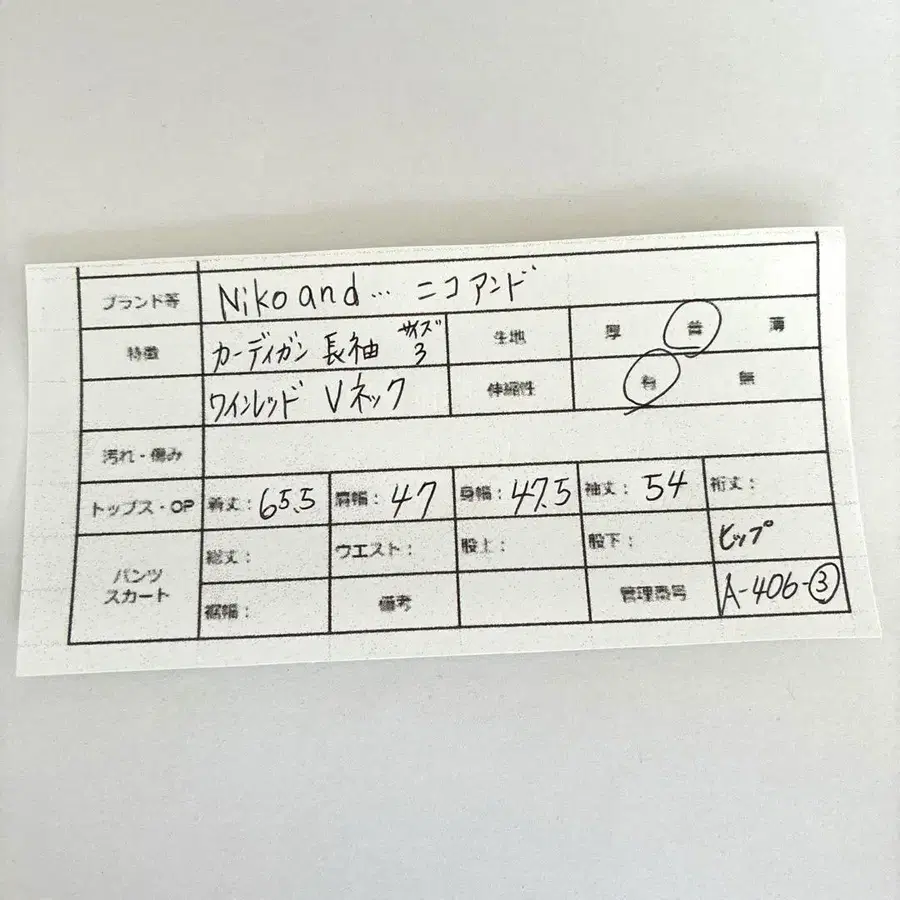 ブランド等 Niko and... ニコアンド
特徴 カーディガン 長袖 サイズ3 生地 厚 普 薄
ワインレッド Vネック 伸縮性 有 無
汚れ・傷み
トップス・OP 着丈: 65.5 肩幅: 47 身幅: 47.5 袖丈: 54 裄丈:
パンツ スカート
総丈: ウエスト: 股上: 股下: ヒップ
裾幅: 備考 管理番号 A-406-③